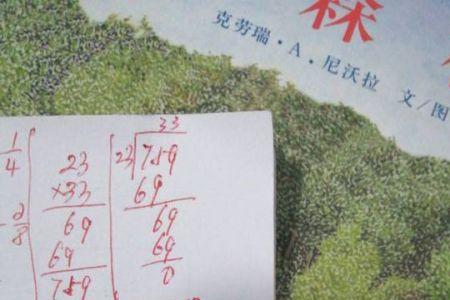 森
克劳瑞·A·尼沃拉 文/图
1
4
2
8
23
×33
69
69
759
33
23 759
69
69
69
0